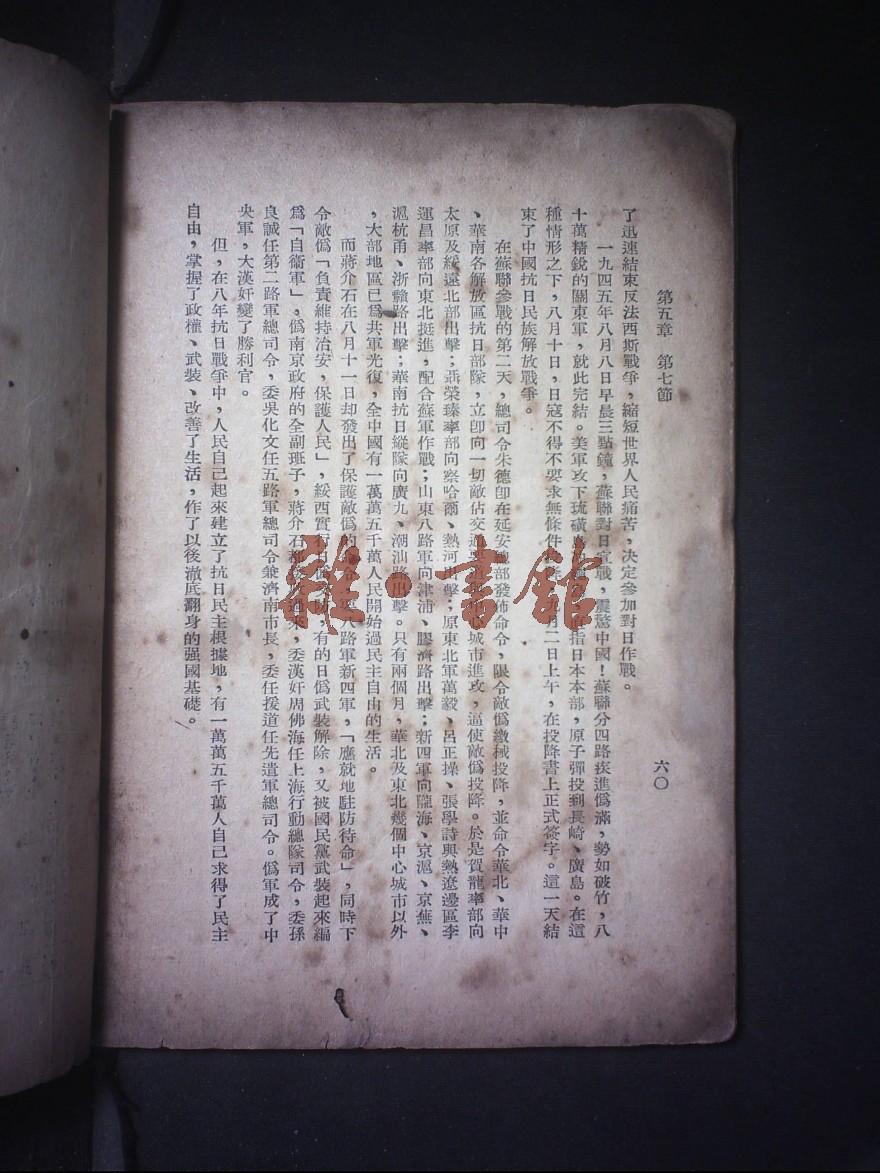 第五章　第七節
六〇
了迅速結束反法西斯戰爭，縮短世界人民痛苦，決定參加對日作戰。
一九四五年八月八日早晨三點鐘，蘇聯對日宣戰，震驚中國！蘇聯分四路疾進僞滿，勢如破竹，八
十萬精銳的關東軍，就此完結。美軍攻下琉磺島　指日本本部，原子彈投到長崎、廣島。在這
種情形之下，八月十日，日寇不得不要求無條件　九月二日上午，在投降書上正式簽字。這一天結
束了中國抗日民族解放戰爭。
在蘇聯參戰的第二天，總司令朱德卽在延安總部發佈命令，限令敵僞繳械投降，並命令華北、華中
、華南各解放區抗日部隊，立卽向一切敵佔交通　心城市進攻，逼使敵僞投降。於是賀龍率部向
太原及綏遠北部出擊；聶榮臻率部向察哈爾、熱河出擊；原東北軍萬毅、呂正操、張學詩與熱遼邊區李
運昌率部向東北挺進，配合蘇軍作戰；山東八路軍向津浦、膠濟路出擊；新四軍向隴海、京滬、京蕪、
滬杭甬、浙贛路出擊；華南抗日縱隊向廣九、潮汕路出擊。只有兩個月，華北及東北幾個中心城市以外
，大部地區已爲共軍光復，全中國有一萬萬五千萬人民開始過民主自由的生活。
而蔣介石在八月十一日却發出了保護敵僞的　八路軍新四軍，「應就地駐防待命」，同時下
令敵僞「負責維持治安，保護人民」，綏西實行日　有的日僞武裝解除，又被國民黨武裝起來編
爲「自衞軍」，僞南京政府的全副班子，蔣介石都　來，委漢奸周佛海任上海行動總隊司令，委孫
良誠任第二路軍總司令，委吳化文任五路軍總司令兼濟南市長，委任援道任先遣軍總司令。僞軍成了中
央軍，大漢奸變了勝利官。
但，在八年抗日戰爭中，人民自己起來建立了抗日民主根據地，有一萬萬五千萬人自己求得了民主
自由，掌握了政權、武裝、改善了生活，作了以後澈底翻身的强國基礎。
雜·書館